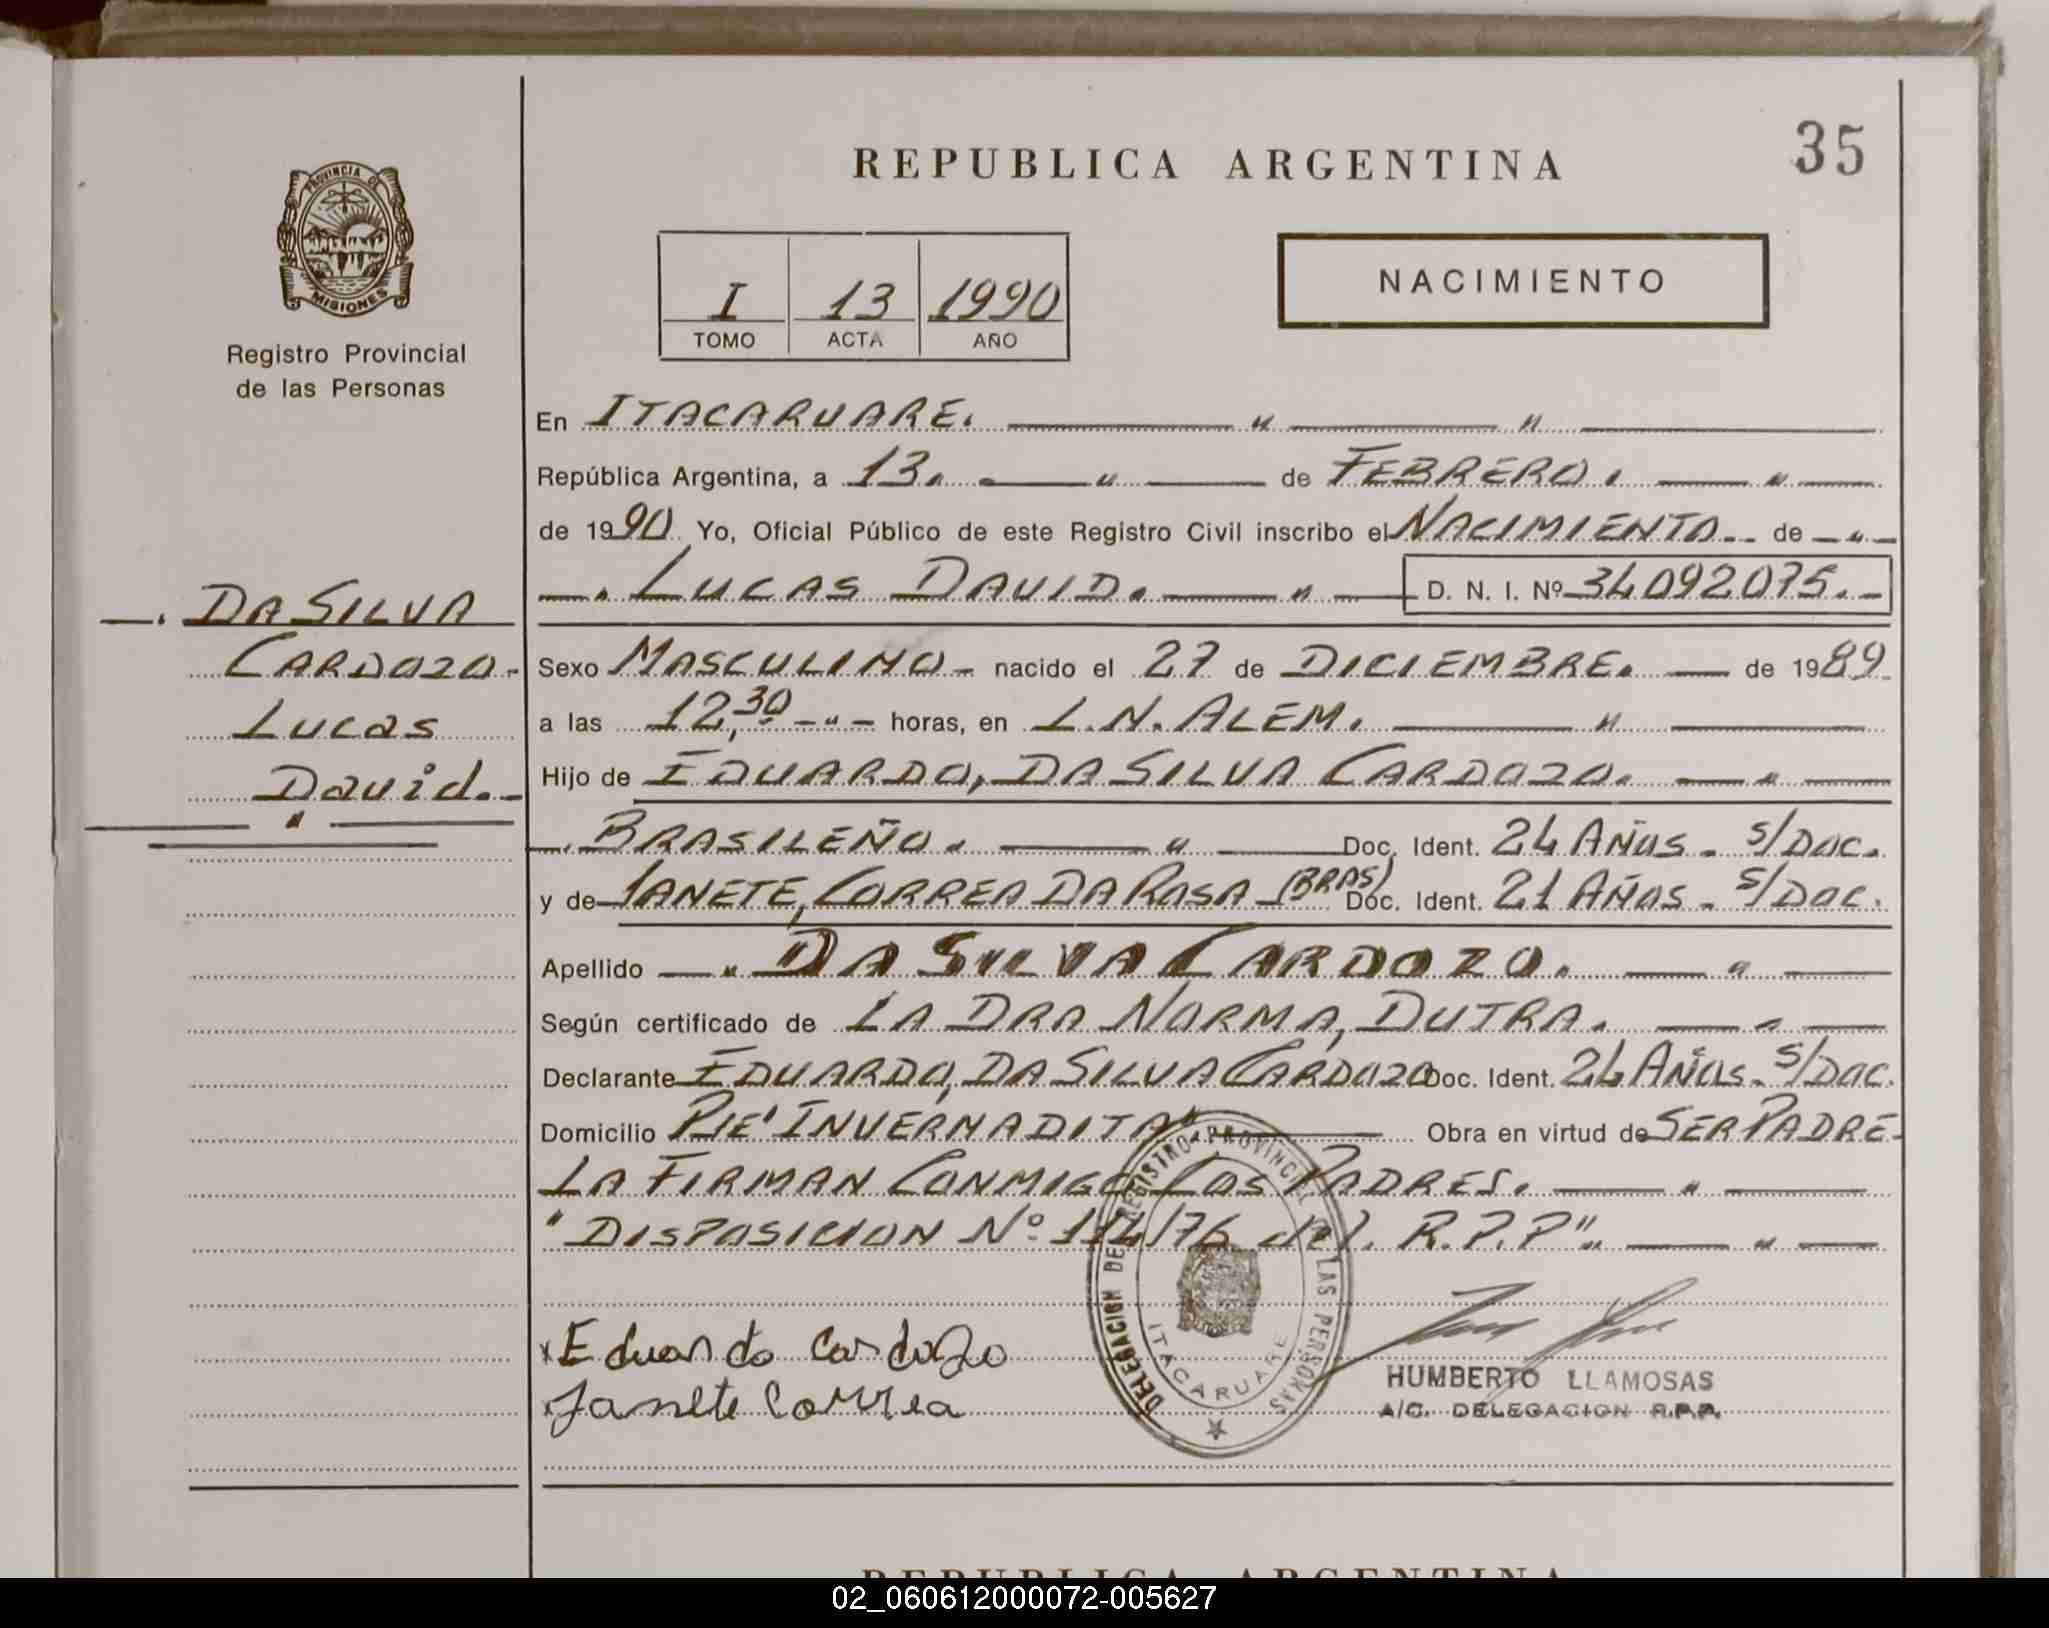 35
REPUBLICA ARGENTINA
PROVINCIA DE
MISIONES
Registro Provincial
de las Personas
I 13 1990
TOMO ACTA AÑO
NACIMIENTO
En ITACARUARE. " "
República Argentina, a 13. " de FEBRERO. "
de 1990 Yo, Oficial Público de este Registro Civil inscribo el NACIMIENTO de "
LUCAS DAVID. " D. N. I. Nº 34092075.
DA SILVA
CARDOZO
Lucas
David.
"
Sexo MASCULINO nacido el 27 de DICIEMBRE. de 1989
a las 12,30 " horas, en L.N. ALEM. "
Hijo de EDUARDO, DA SILVA CARDOZO. "
BRASILEÑO. " Doc. Ident. 24 AÑOS. S/DOC.
y de JANETE, CORREA DA ROSA (BRAS) Doc. Ident. 21 AÑOS. S/DOC.
Apellido " DA SILVA CARDOZO. "
Según certificado de LA DRA NORMA, DUTRA. "
Declarante EDUARDO, DA SILVA CARDOZO Doc. Ident. 24 AÑOS. S/DOC.
Domicilio PJE' INVERNADITA" Obra en virtud de SER PADRE
LA FIRMAN CONMIGO LOS PADRES. "
"DISPOSICION Nº 114/76 del. R.P.P". "
x Eduardo Cardozo
x Janete Correa
DELEGACION DEL REGISTRO PROVINCIAL DE LAS PERSONAS
ITACARUARE
HUMBERTO LLAMOSAS
A/C. DELEGACION R.P.P.
REPUBLICA ARGENTINA
02_060612000072-005627